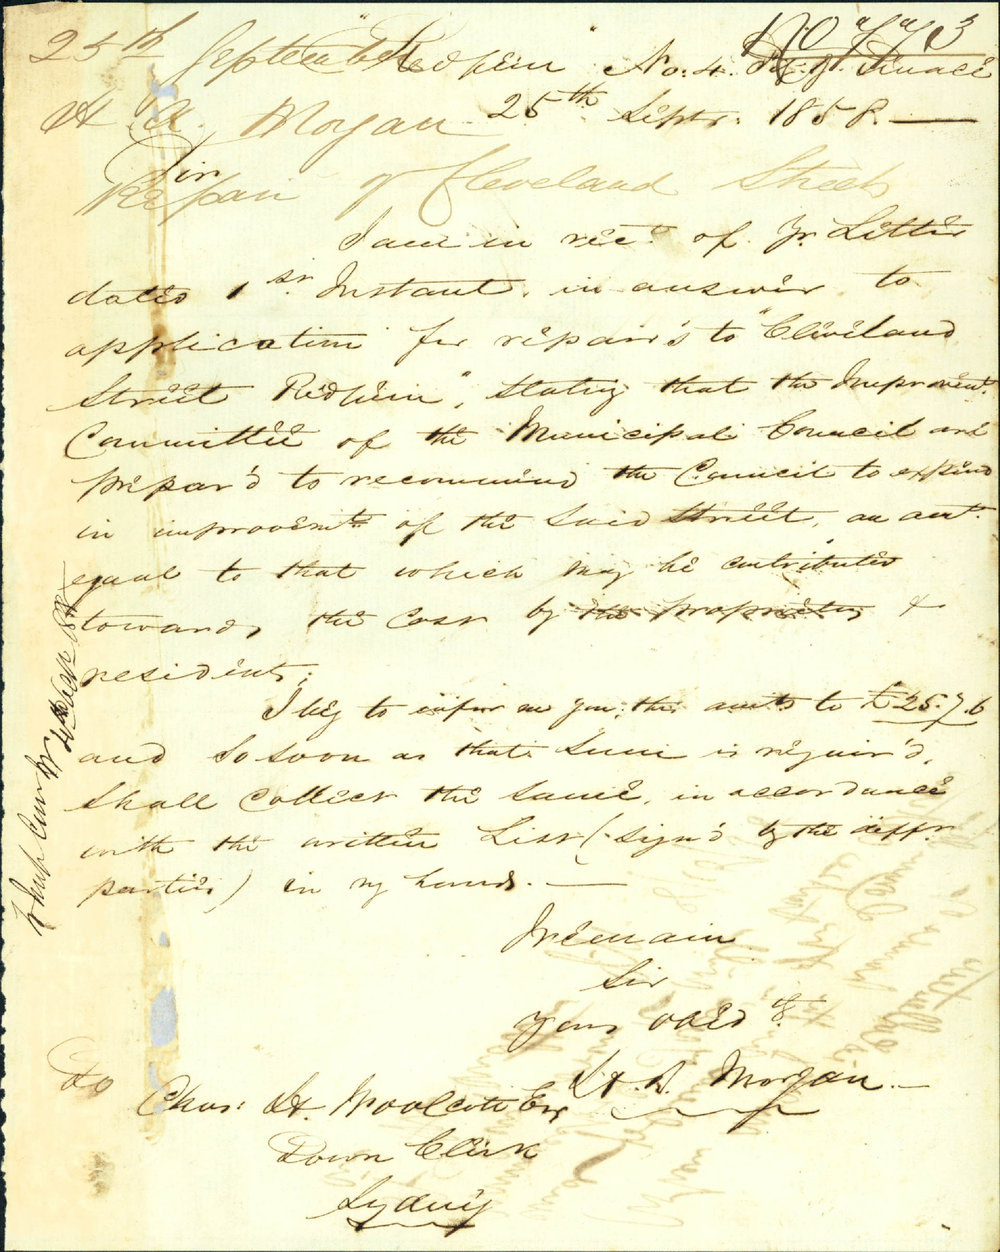 No 773
25th September
Redfern No: 4.
H. A. Morgan 25th Septr. 1858.
Sir
Repair of Cleveland Street
I am in rect. of Yr Letter
dated 1st Instant, in answer to
application for repairs to "Cleveland
Street Redfern", stating that the Improvemt.
Committee of the Municipal Council are
prepar'd to recommend the Council to expend
in improvemts of the said Street, an amt.
equal to that which may be contributed
towards the Cost by the proprietors &
residents;
I beg to inform you, the amts to £25.7.6
and so soon as that Sum is requir'd,
shall collect the same, in accordance
with the written List (sign'd by the diffr.
parties) in my hands.
I remain
Sir
Your obedt.
H. A. Morgan
To
Chas: H. Woolcott Esq
Town Clerk
Sydney